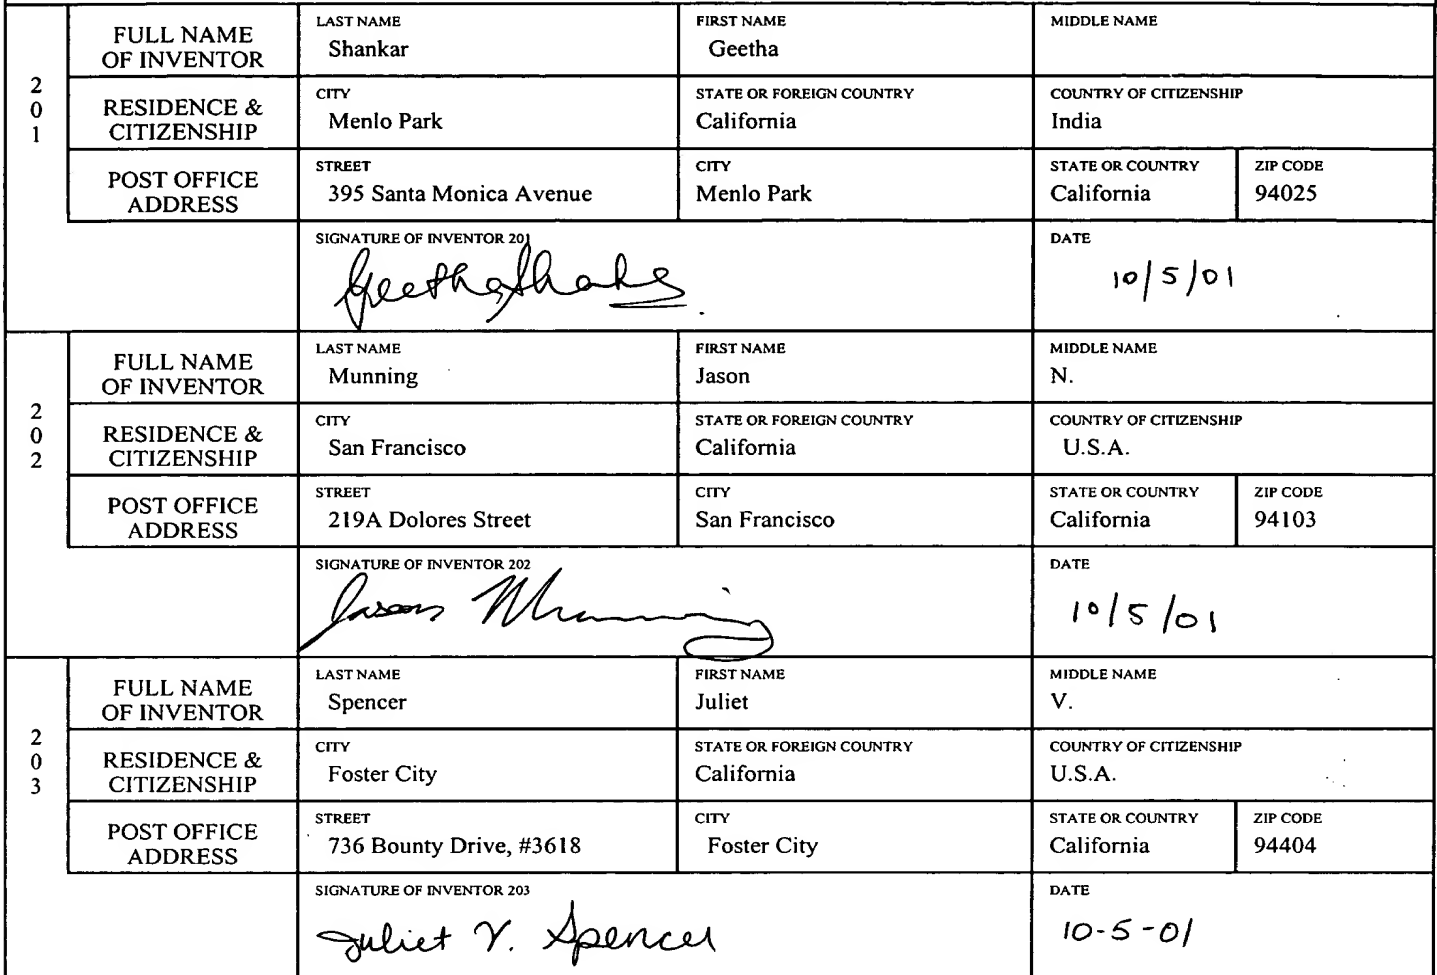 2
0
1
FULL NAME
OF INVENTOR
LAST NAME
Shankar
FIRST NAME
Geetha
MIDDLE NAME
RESIDENCE &
CITIZENSHIP
CITY
Menlo Park
STATE OR FOREIGN COUNTRY
California
COUNTRY OF CITIZENSHIP
India
POST OFFICE
ADDRESS
STREET
395 Santa Monica Avenue
CITY
Menlo Park
STATE OR COUNTRY
California
ZIP CODE
94025
SIGNATURE OF INVENTOR 201
DATE
10/5/01
2
0
2
FULL NAME
OF INVENTOR
LAST NAME
Munning
FIRST NAME
Jason
MIDDLE NAME
N.
RESIDENCE &
CITIZENSHIP
CITY
San Francisco
STATE OR FOREIGN COUNTRY
California
COUNTRY OF CITIZENSHIP
U.S.A.
POST OFFICE
ADDRESS
STREET
219A Dolores Street
CITY
San Francisco
STATE OR COUNTRY
California
ZIP CODE
94103
SIGNATURE OF INVENTOR 202
Jason
DATE
10/5/01
2
0
3
FULL NAME
OF INVENTOR
LAST NAME
Spencer
FIRST NAME
Juliet
MIDDLE NAME
V.
RESIDENCE &
CITIZENSHIP
CITY
Foster City
STATE OR FOREIGN COUNTRY
California
COUNTRY OF CITIZENSHIP
U.S.A.
POST OFFICE
ADDRESS
STREET
736 Bounty Drive, #3618
CITY
Foster City
STATE OR COUNTRY
California
ZIP CODE
94404
SIGNATURE OF INVENTOR 203
Juliet V. Spencer
DATE
10-5-01